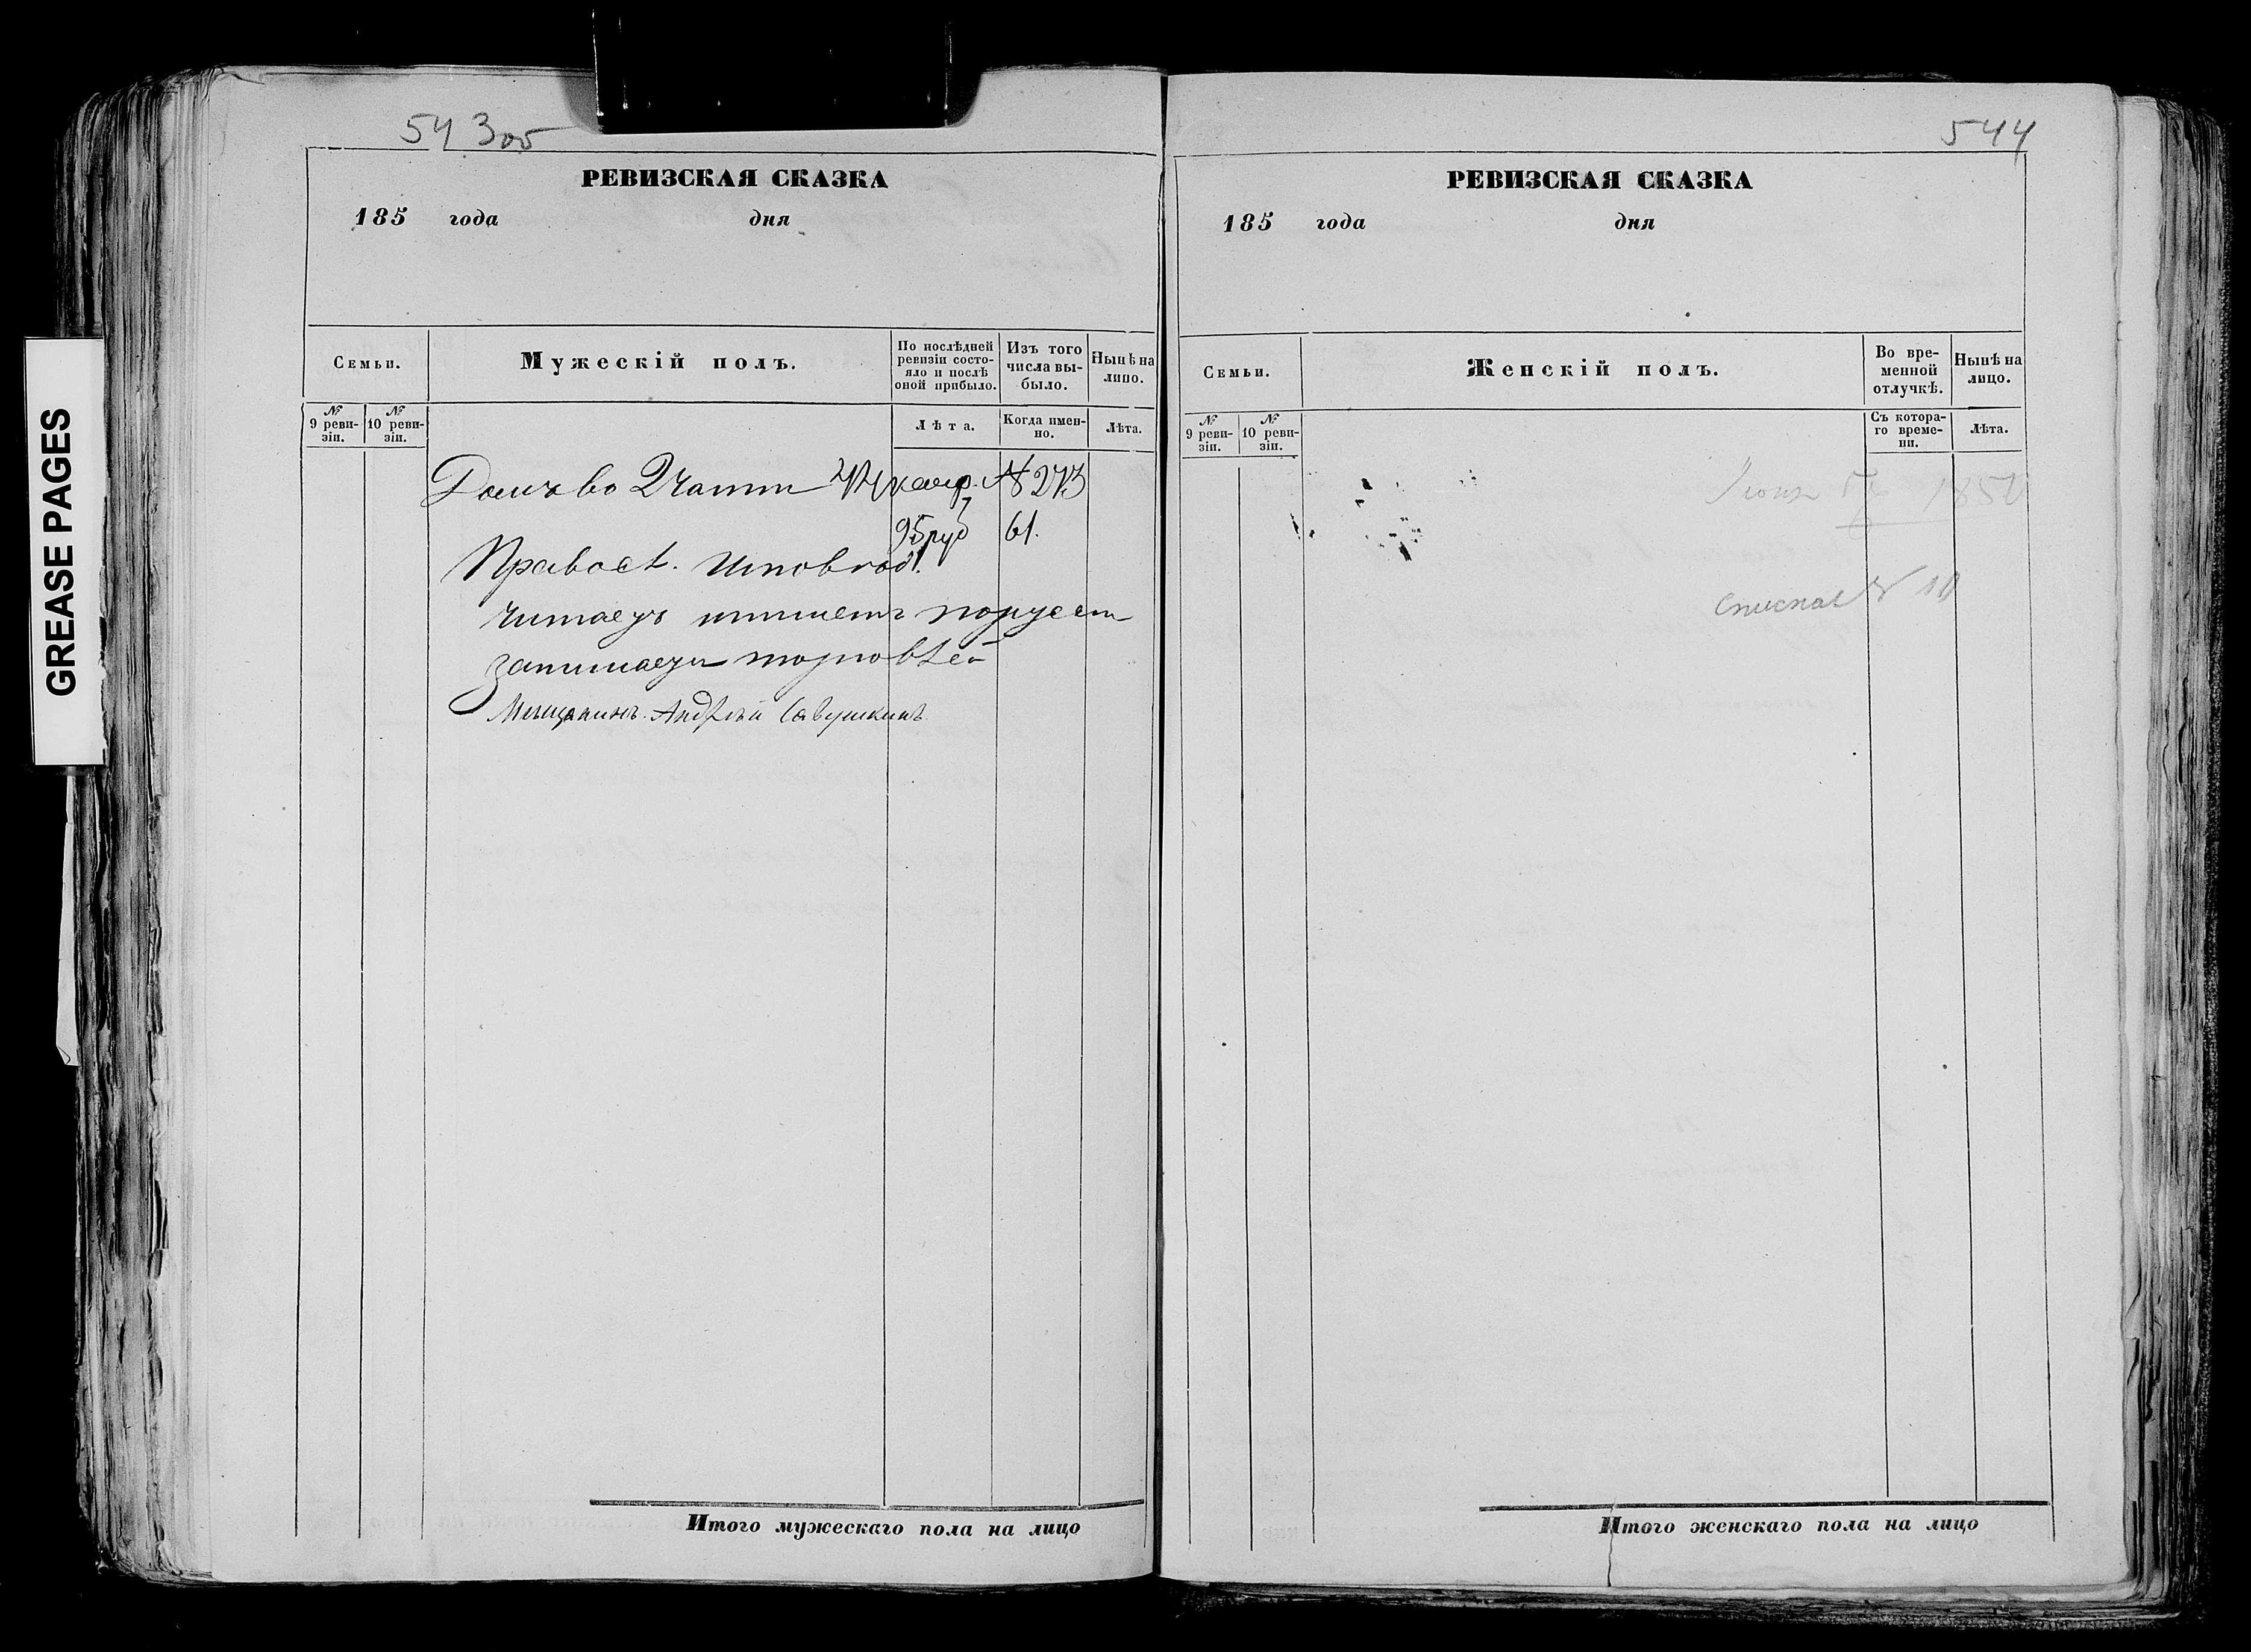 GREASE PAGES
543об
РЕВИЗСКАЯ СКАЗКА
185 года дня
Семьи.
Мужескій полъ.
По послѣдней ревизіи состояло и послѣ оной прибыло.
Изъ того числа выбыло.
Нынѣ на лицо.
№ 9 ревизіи.
№ 10 ревизіи.
Лѣта.
Когда именно.
Лѣта.
Домъ во 2 части № 273
95 руб 61.
Правосл.
читаетъ ипишетъ порусски
занимаетъ торговлей
Мещанинъ Андрей Савушкинъ
Итого мужескаго пола на лицо
544
РЕВИЗСКАЯ СКАЗКА
185 года дня
Семьи.
Женскій полъ.
Во временной отлучкѣ.
Нынѣ на лицо.
№ 9 ревизіи.
№ 10 ревизіи.
Съ котораго времени.
Лѣта.
Итого женскаго пола на лицо